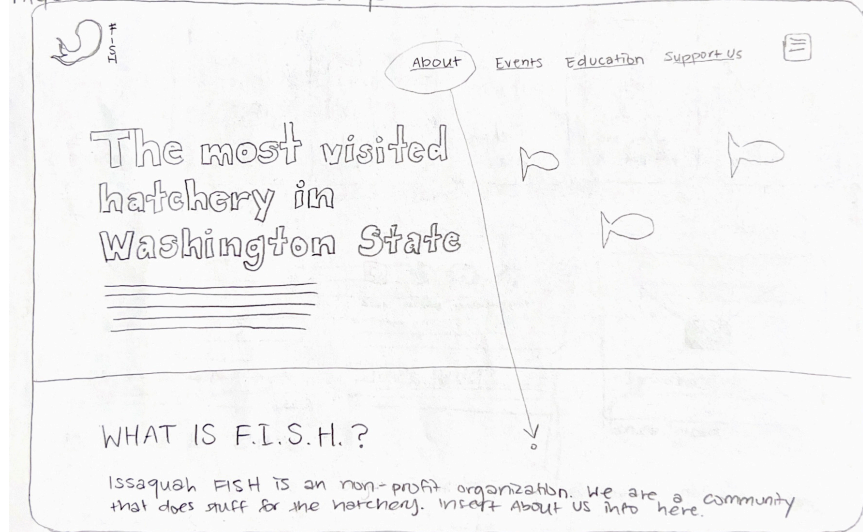 FISH
About Events Education Support Us
The most visited
hatchery in
Washington State
WHAT IS F.I.S.H.?
Issaquah FISH is an non-profit organization. We are a community
that does stuff for the hatchery. Insert About Us info here.